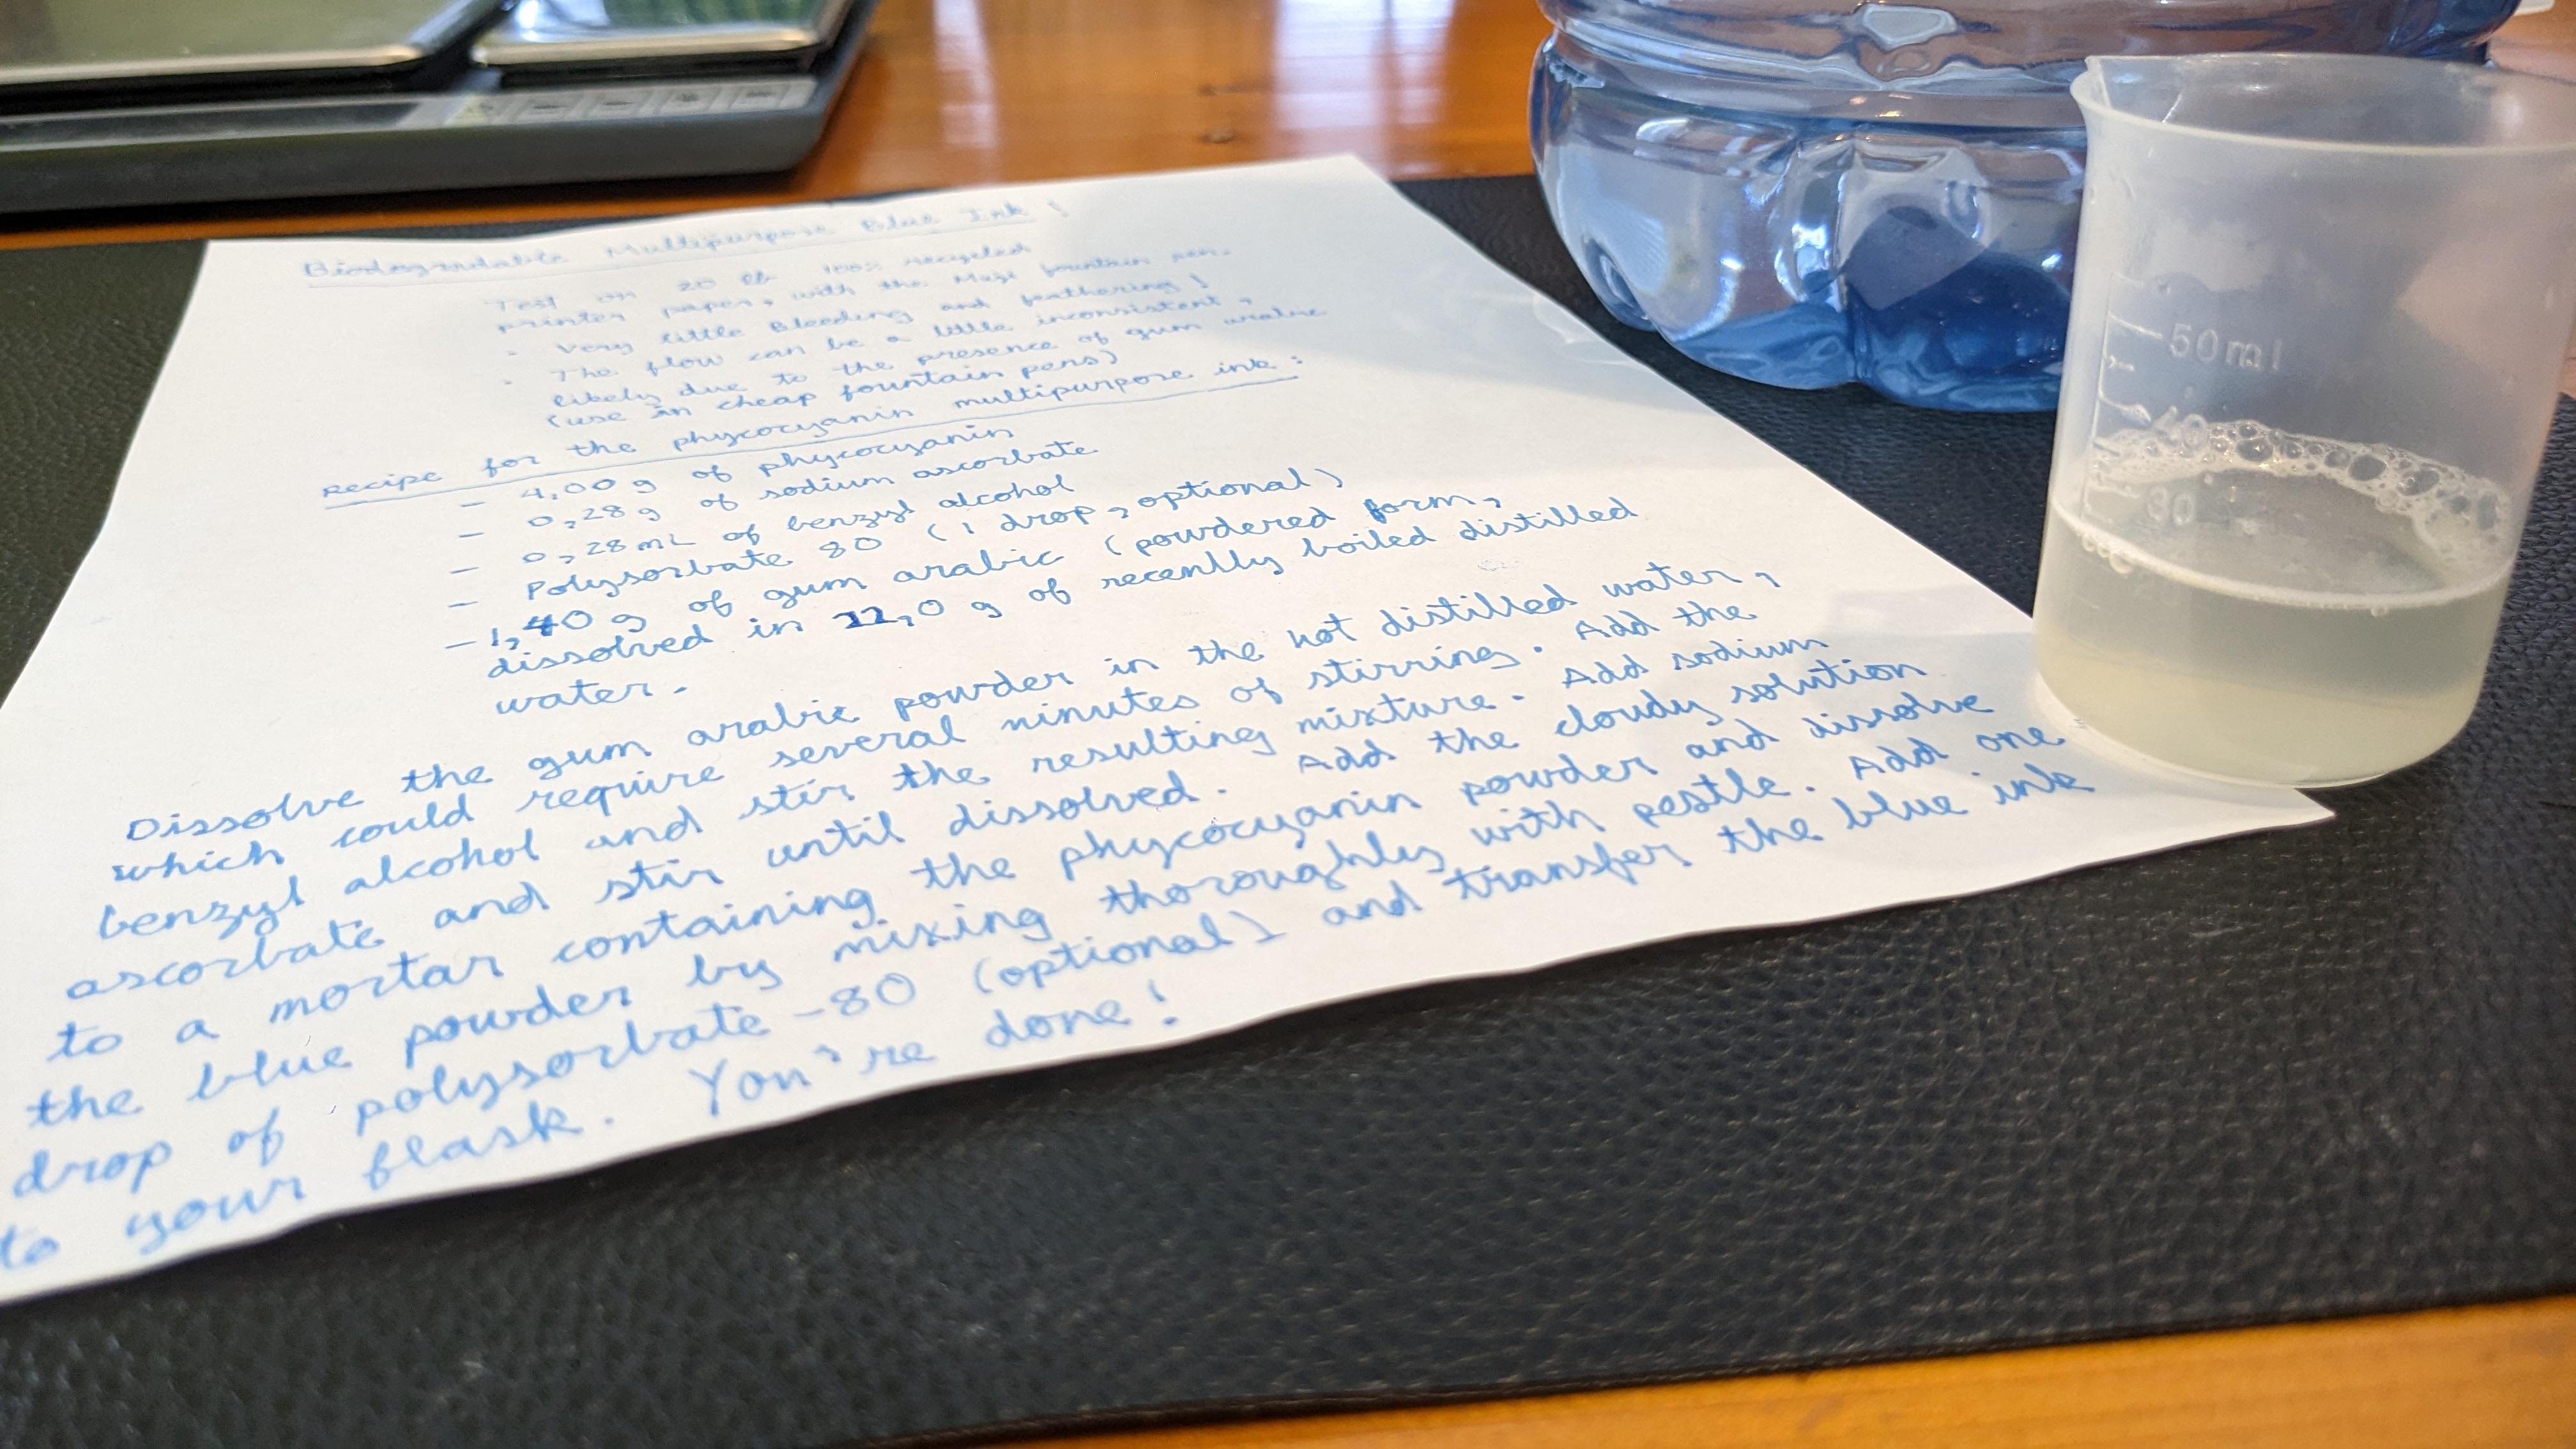 Biodegradable Multipurpose Blue Ink!
Test on 20 lb 100% recycled
printer paper, with the Maji fountain pen.
- Very little Bleeding and feathering!
- The flow can be a little inconsistent,
likely due to the presence of gum arabic
(use in cheap fountain pens)
Recipe for the phycocyanin multipurpose ink:
- 4,00 g of phycocyanin
- 0,28 g of sodium ascorbate
- 0,28 mL of benzyl alcohol
- Polysorbate 80 (1 drop, optional)
- 1,40 g of gum arabic (powdered form,
dissolved in 22,0 g of recently boiled distilled
water.
Dissolve the gum arabic powder in the hot distilled water,
which could require several minutes of stirring. Add the
benzyl alcohol and stir the resulting mixture. Add sodium
ascorbate and stir until dissolved. Add the cloudy solution
to a mortar containing the phycocyanin powder and dissolve
the blue powder by mixing thoroughly with pestle. Add one
drop of polysorbate-80 (optional) and transfer the blue ink
to your flask. You're done!
50ml
40
30